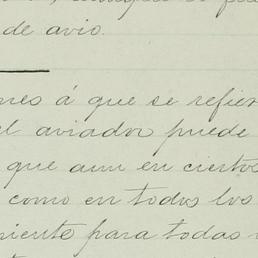 de avio.
nes á que se refier
el aviador puede
que aun en ciertos
como en todos los
niente para todas